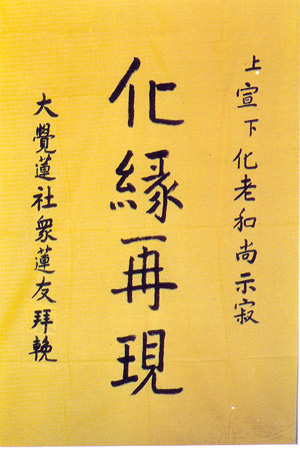 上宣下化老和尚示寂
化緣再現
大覺蓮社眾蓮友拜輓